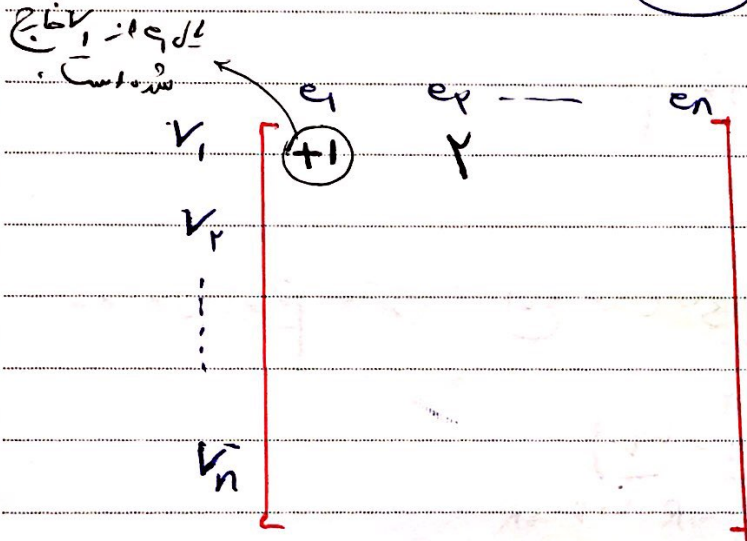 یال e₁ از V₁ خارج
شده است.
e₁ e₂ ---- eₙ
V₁ +1 ۲
V₂
Vₙ